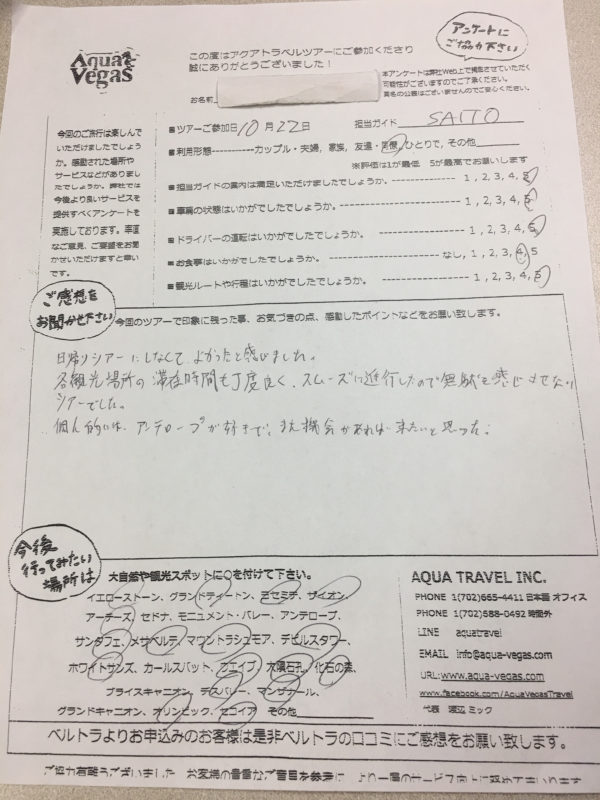 Aqua
Vegas
この度はアクアトラベルツアーにご参加くださり
誠にありがとうございました！
アンケートに
ご協力下さい
本アンケートは弊社Web上で掲載させていただく
可能性がございますのでご了承ください。
実名の公表はございませんのでご安心ください。
お名前
今回のご旅行は楽しんで
いただけましたでしょう
か。感動された場所や
サービスなどがありまし
たでしょうか。弊社では
今後より良いサービスを
提供すべくアンケートを
実施しております。率直
なご意見、ご要望をお聞
かせいただけますと幸い
です。
■ツアーご参加日 10月22日 担当ガイド SAITO
■利用形態------------カップル・夫婦, 家族, 友達・同僚, ひとりで, その他
※評価は1が最低 5が最高でお願いします
■担当ガイドの案内は満足いただけましたでしょうか。 1, 2, 3, 4, 5
■車輌の状態はいかがでしたでしょうか。 1, 2, 3, 4, 5
■ドライバーの運転はいかがでしたでしょうか。 1, 2, 3, 4, 5
■お食事はいかがでしたでしょうか。 なし, 1, 2, 3, 4, 5
■観光ルートや行程はいかがでしたでしょうか。 1, 2, 3, 4, 5
ご感想を
お聞かせ下さい
今回のツアーで印象に残った事、お気づきの点、感動したポイントなどをお願い致します。
日帰りツアーにしなくてよかったと感じました。
各観光場所の滞在時間も丁度良く、スムーズに進行したので無駄を感じさせない
ツアーでした。
個人的には、アンテロープが好きで、また機会があれば来たいと思った。
今後
行ってみたい
場所は
大自然や観光スポットに○を付けて下さい。
イエローストーン、グランドティートン、ヨセミテ、ザイオン、
アーチーズ、セドナ、モニュメント・バレー、アンテロープ、
サンタフェ、メサベルデ、マウントラシュモア、デビルスタワー、
ホワイトサンズ、カールスバット、ウエイブ、大隕石孔、化石の森、
ブライスキャニオン、デスバレー、マンザナール、
グランドキャニオン、オリンピック、セコイア その他
AQUA TRAVEL INC.
PHONE 1(702)665-4411 日本語 オフィス
PHONE 1(702)588-0492 時間外
LINE aquatravel
EMAIL info@aqua-vegas.com
URL:www.aqua-vegas.com
www.facebook.com/AquaVegasTravel
代表 渡辺 ミック
ベルトラよりお申込みのお客様は是非ベルトラの口コミにご感想をお願い致します。
ご協力有難うございました お客様の貴重なご意見を参考に、より一層のサービス向上に努めてまいります